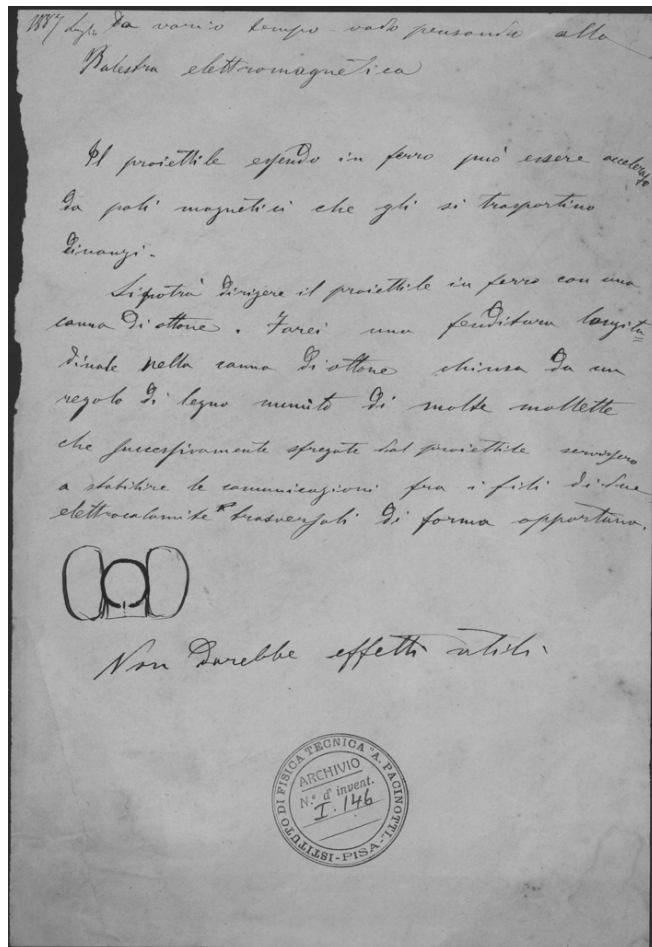 1887 Luglio Da vario tempo vado pensando alla
Balestra elettromagnetica
Il proiettile essendo in ferro può essere accelerato
da poli magnetici che gli si trasportino
dinanzi.
Si potrà dirigere il proiettile in ferro con una
canna di ottone. Farei una fenditura longitu=
dinale nella canna di ottone chiusa da un
regolo di legno munito di molte mollette
che successivamente sfregate dal proiettile servissero
a stabilire le comunicazioni fra i fili di due
elettrocalamite trasversali di forma opportuna.
Non darebbe effetti utili.
ISTITUTO DI FISICA TECNICA "A. PACINOTTI" - PISA -
ARCHIVIO
N.° d'invent.
I. 146